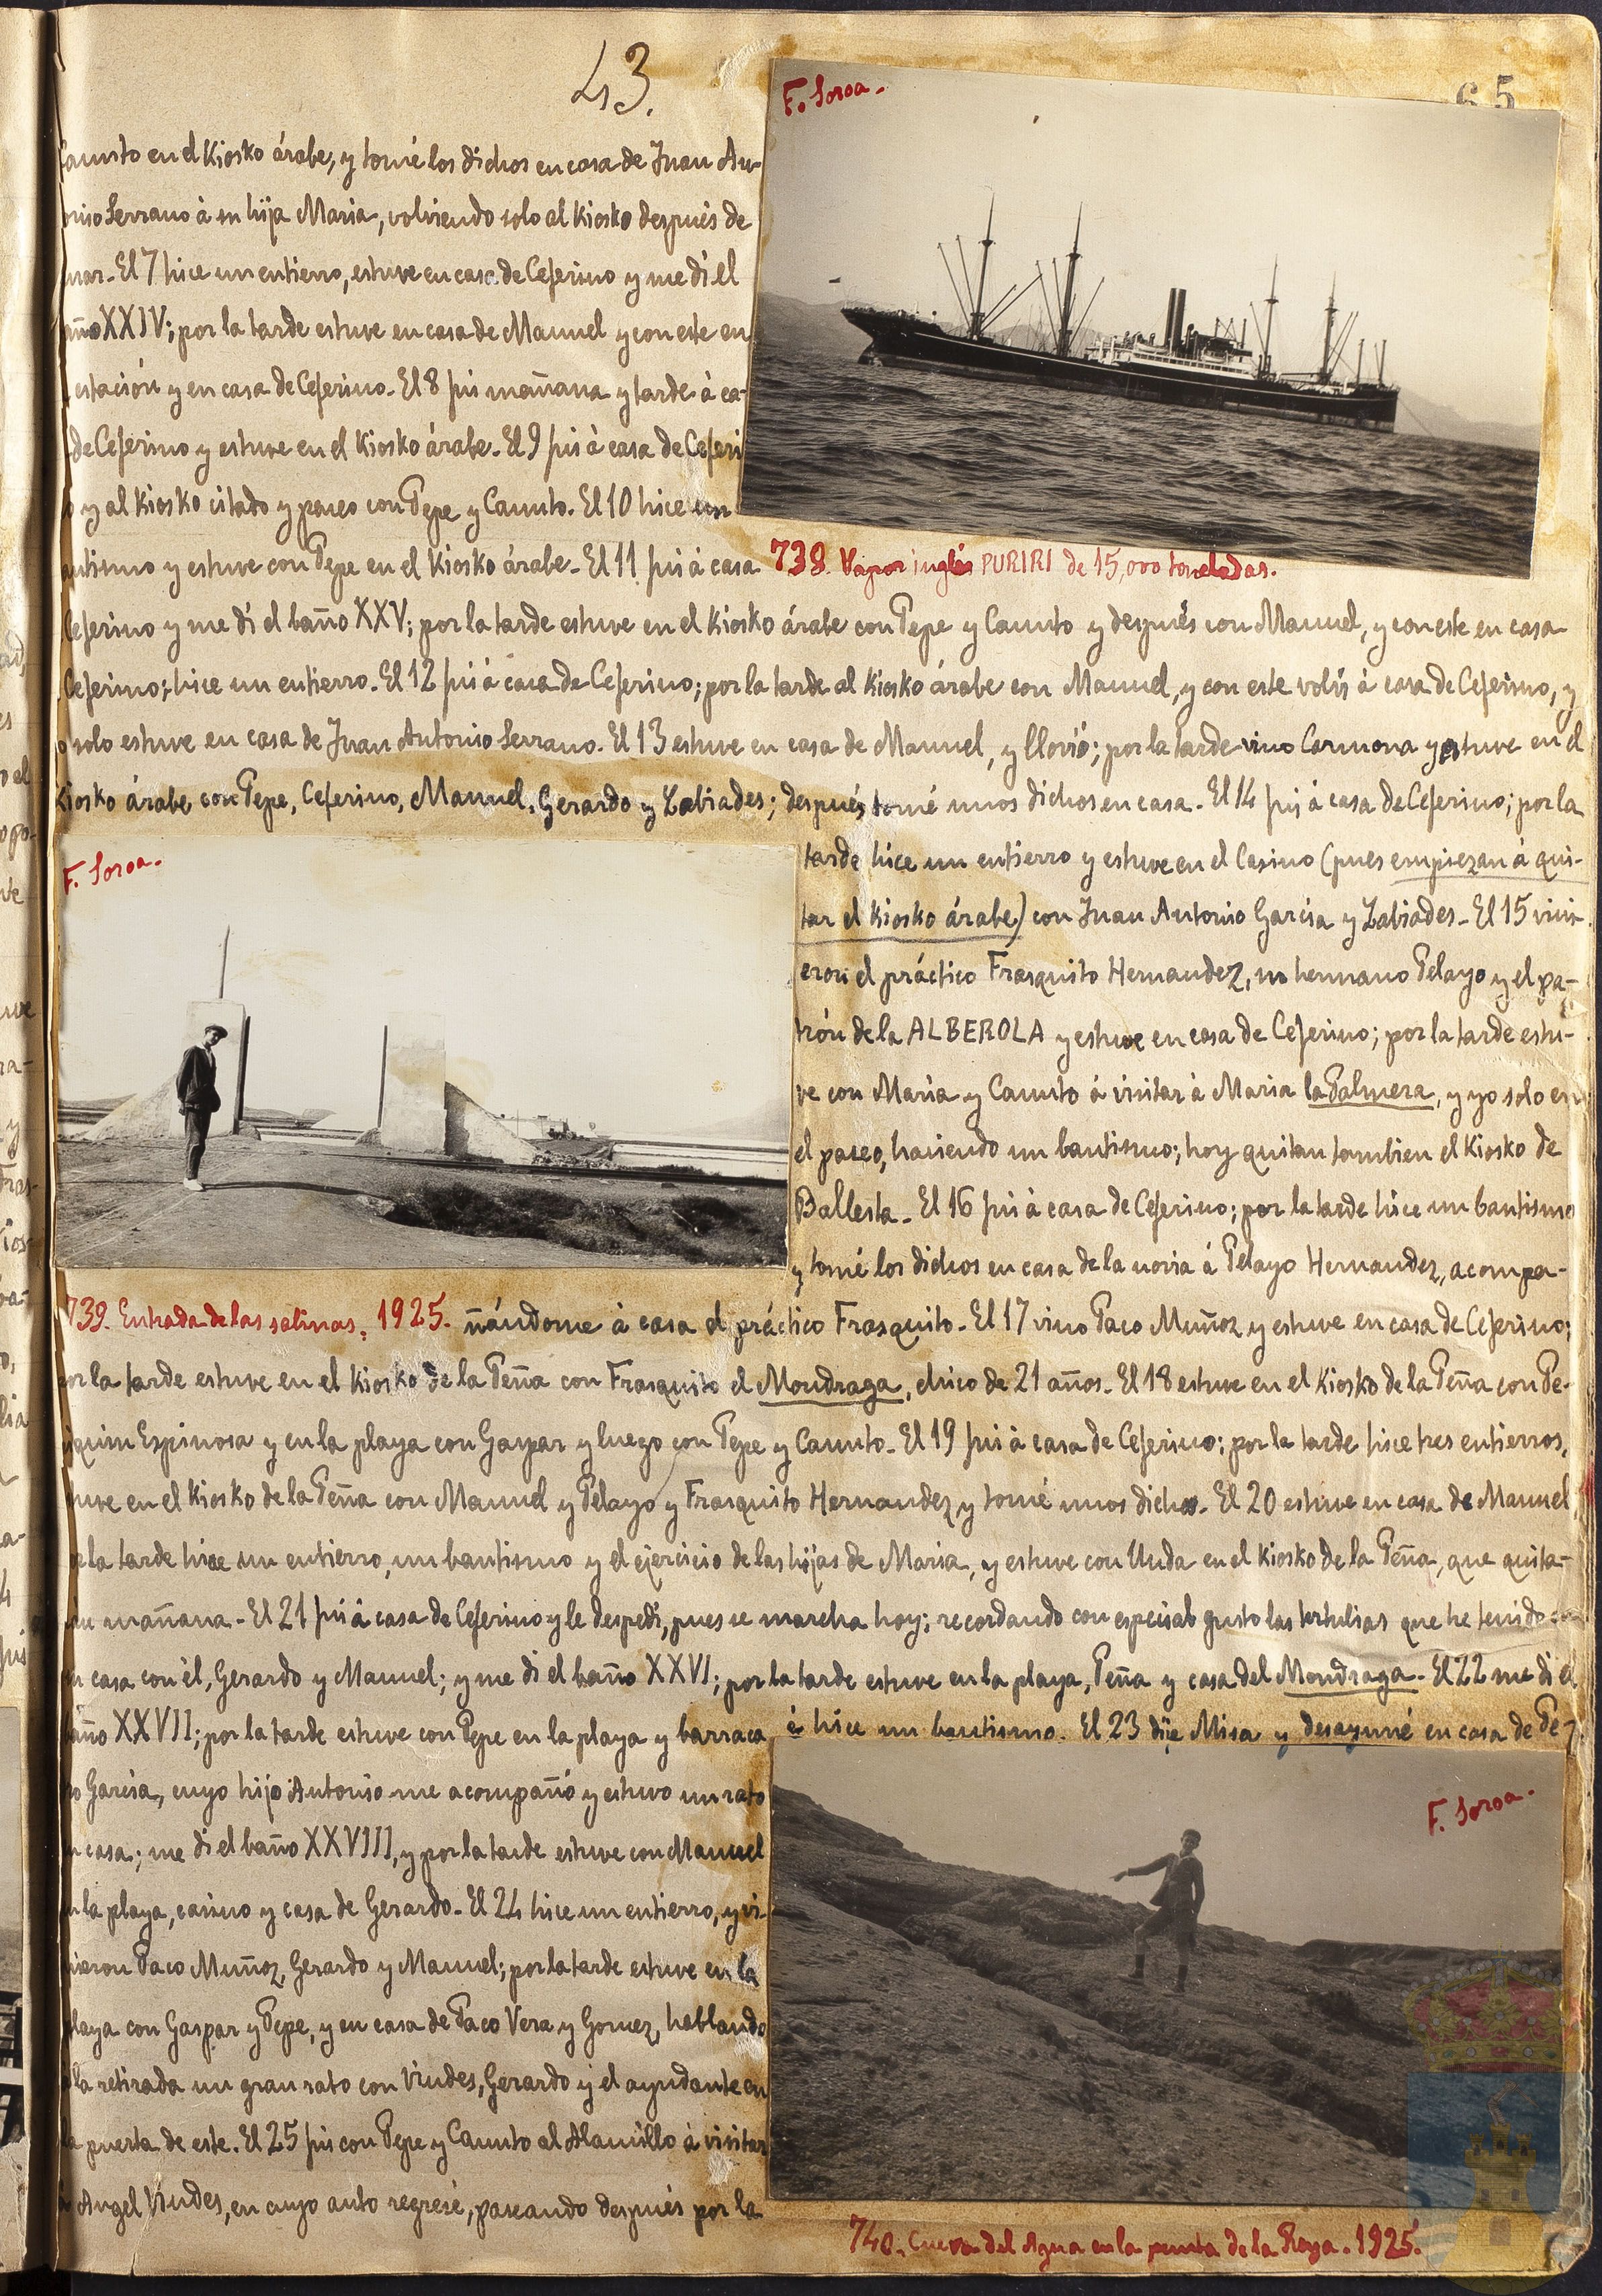 43.
65
F. Soroa.-
Canuto en el Kiosko árabe, y tomé los dichos en casa de Juan An-
onio Serrano à su hija Maria, volviendo solo al Kiosko después de
nar.- El 7 hice un entierro, estuve en casa de Ceferino y me dí el
año XXIV; por la tarde estuve en casa de Manuel y con este en
estación y en casa de Ceferino.- El 8 fui mañana y tarde à ca-
de Ceferino y estuve en el Kiosko árabe.- El 9 fui à casa de Ceferi
o y al Kiosko citado y paseo con Pepe y Canuto.- El 10 hice un
autismo y estuve con Pepe en el Kiosko árabe.- El 11 fui à casa
738. Vapor inglés PURIRI de 15,000 toneladas.
Ceferino y me dí el baño XXV; por la tarde estuve en el Kiosko árabe con Pepe y Canuto y después con Manuel, y con este en casa
Ceferino; hice un entierro.- El 12 fui à casa de Ceferino; por la tarde al Kiosko árabe con Manuel, y con este volví à casa de Ceferino, y
o solo estuve en casa de Juan Antonio Serrano.- El 13 estuve en casa de Manuel, y llovió; por la tarde vino Carmona y estuve en el
Kiosko árabe con Pepe, Ceferino, Manuel, Gerardo y Zabiades; después tomé unos dichos en casa.- El 14 fui à casa de Ceferino; por la
F. Soroa.-
tarde hice un entierro y estuve en el Casino (pues empiezan à qui-
tar el Kiosko árabe) con Juan Antonio Garcia y Zabiades.- El 15 vini-
eron el práctico Frasquito Hernandez, su hermano Pelayo y el pa-
trón de la ALBEROLA y estuve en casa de Ceferino; por la tarde estu-
ve con Maria y Canuto à visitar à Maria la Palmera, y yo solo en
el paseo, haciendo un bautismo; hoy quitan tambien el Kiosko de
Ballesta.- El 16 fui à casa de Ceferino; por la tarde hice un bautismo
y tomé los dichos en casa de la novia à Pelayo Hernandez, acompa-
739. Entrada de las salinas. 1925.
ñándome à casa el práctico Frasquito.- El 17 vino Paco Muñoz y estuve en casa de Ceferino;
or la tarde estuve en el Kiosko de la Peña con Frasquito el Mondraga, chico de 21 años.- El 18 estuve en el Kiosko de la Peña con Pe-
iquin Espinosa y en la playa con Gaspar y luego con Pepe y Canuto.- El 19 fui à casa de Ceferino; por la tarde hice tres entierros,
tuve en el Kiosko de la Peña con Manuel y Pelayo y Frasquito Hernandez y tomé unos dichos.- El 20 estuve en casa de Manuel,
or la tarde hice un entierro, un bautismo y el ejercicio de las hijas de Maria, y estuve con Unda en el Kiosko de la Peña, que quita-
án mañana.- El 21 fui à casa de Ceferino y le despedí, pues se marcha hoy; recordando con especial gusto las tertulias que he tenido
n casa con él, Gerardo y Manuel; y me dí el baño XXVI; por la tarde estuve en la playa, Peña y casa del Mondraga.- El 22 me dí el
año XXVII; por la tarde estuve con Pepe en la playa y barraca é hice un bautismo. El 23 dije Misa y desayuné en casa de Pe-
ro Garcia, cuyo hijo Antonio me acompañó y estuvo un rato
n casa; me dí el baño XXVIII, y por la tarde estuve con Manuel
n la playa, casino y casa de Gerardo.- El 24 hice un entierro, y vi-
nieron Paco Muñoz, Gerardo y Manuel; por la tarde estuve en la
playa con Gaspar y Pepe, y en casa de Paco Vera y Gomez, hablando
à la retirada un gran rato con Viudes, Gerardo y el ayudante en
la puerta de este. El 25 fui con Pepe y Canuto al Alamillo à visitar
à Angel Viudes, en cuyo auto regresé, paseando después por la
F. Soroa.-
740.- Cueva del Agua en la punta de la Raya.- 1925.